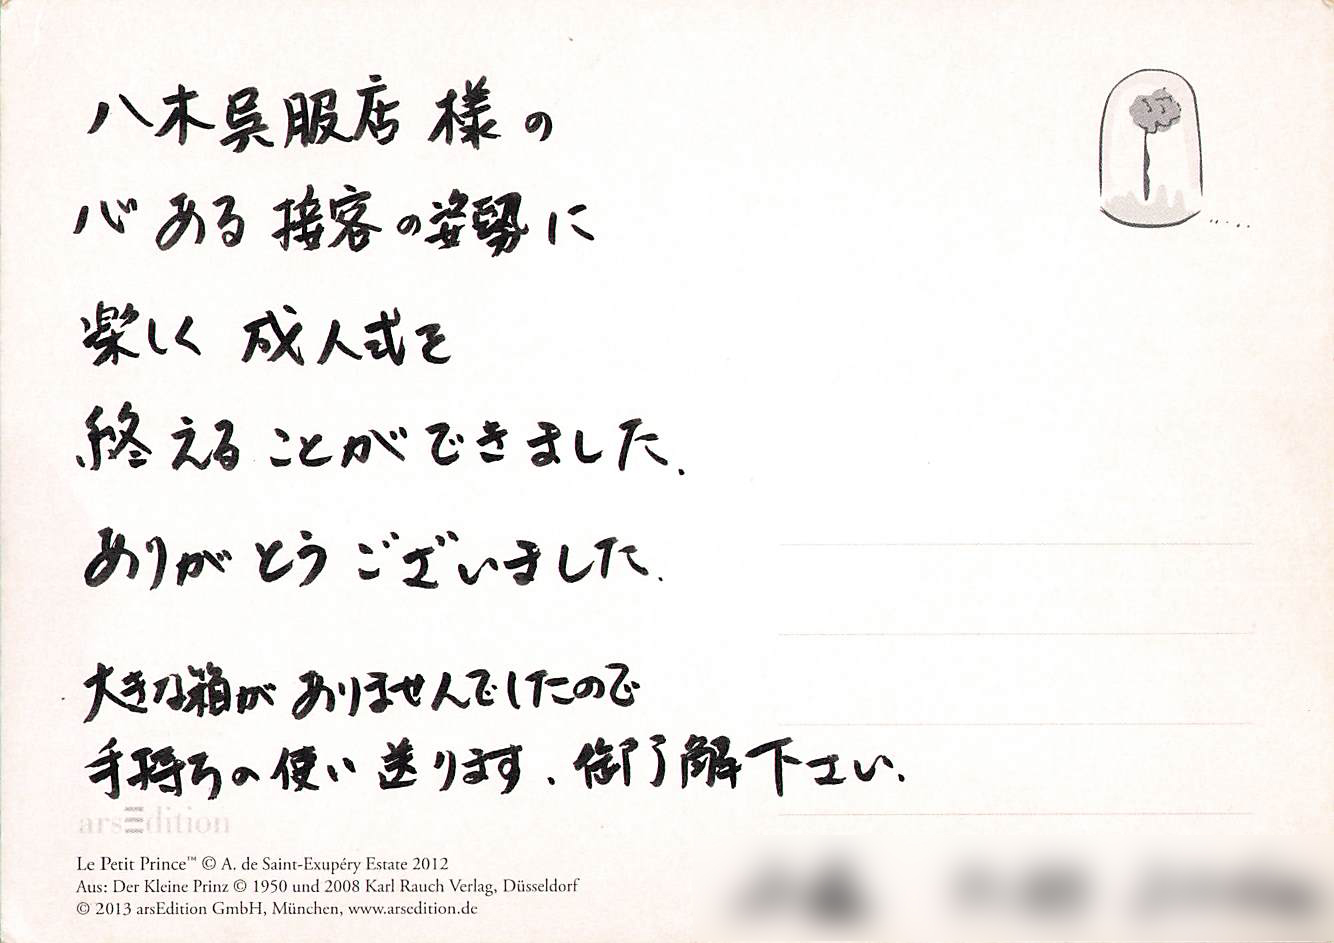 八木呉服店 様の
心ある 接客の姿勢に
楽しく 成人式を
終えることができました.
ありがとうございました.
大きな箱がありませんでしたので
手持ちの使い送ります. 御了解下さい.
arsEdition
Le Petit Prince™ © A. de Saint-Exupéry Estate 2012
Aus: Der Kleine Prinz © 1950 und 2008 Karl Rauch Verlag, Düsseldorf
© 2013 arsEdition GmbH, München, www.arsedition.de